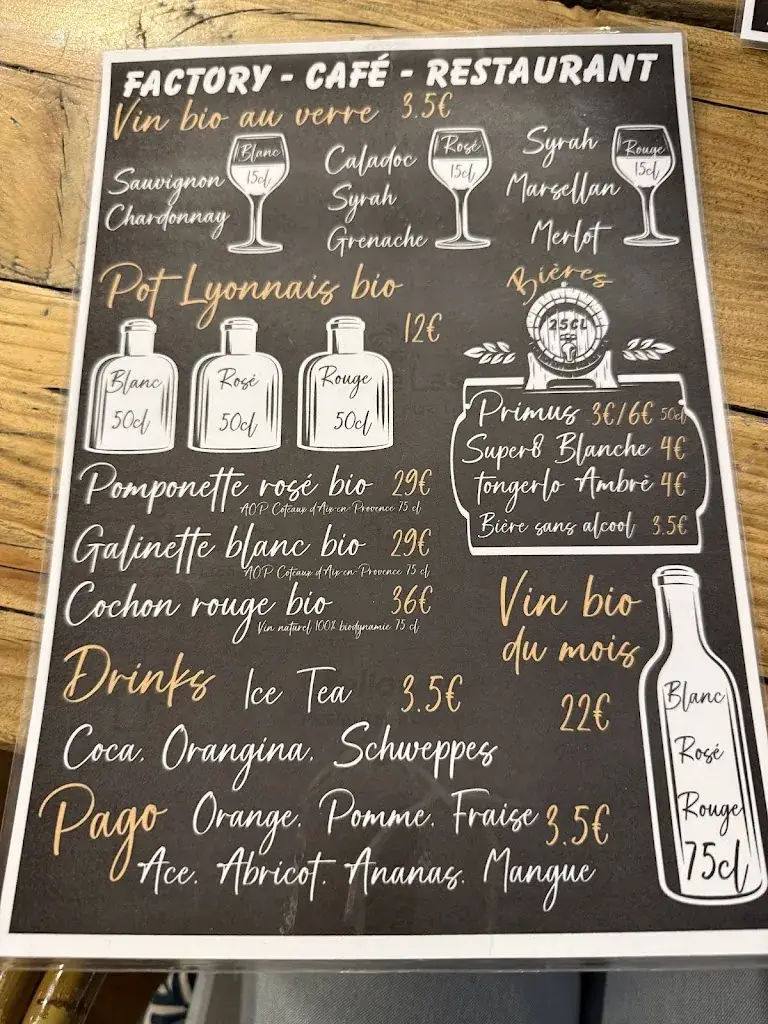 FACTORY - CAFÉ - RESTAURANT
Vin bio au verre 3.5€
Blanc
15cl
Sauvignon
Chardonnay
Rosé
15cl
Caladoc
Syrah
Grenache
Rouge
15cl
Syrah
Marsellan
Merlot
Pot Lyonnais bio
12€
Blanc
50cl
Rosé
50cl
Rouge
50cl
Bières
25CL
Primus 3€/6€ 50cl
Super8 Blanche 4€
tongerlo Ambrè 4€
Bière sans alcool 3.5€
Pomponette rosé bio 29€
AOP Coteaux d'Aix-en-Provence 75 cl
Galinette blanc bio 29€
AOP Coteaux d'Aix-en-Provence 75 cl
Cochon rouge bio 36€
Vin naturel 100% biodynamie 75 cl
Vin bio
du mois
22€
Blanc
Rosé
Rouge
75cl
Drinks Ice Tea 3.5€
Coca. Orangina. Schweppes
Pago Orange. Pomme. Fraise 3.5€
Ace. Abricot. Ananas. Mangue